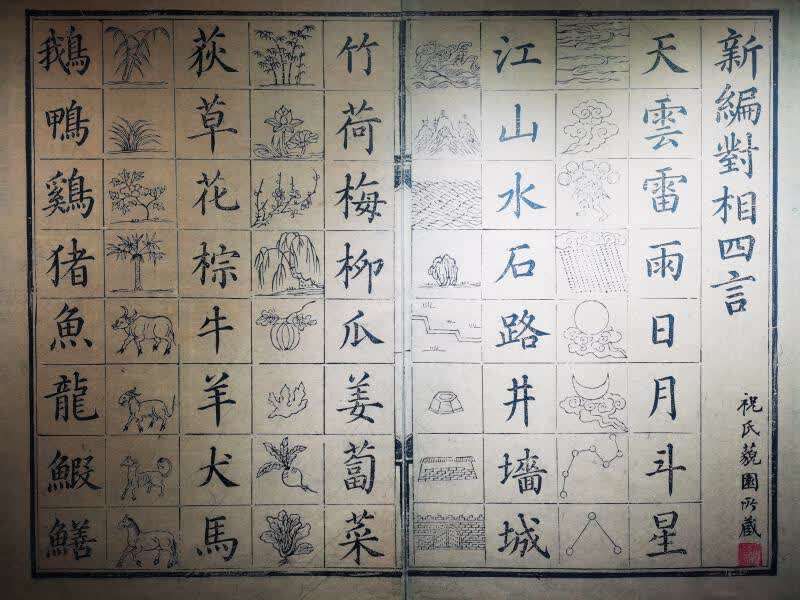 新編對相四言
祝氏藐園所藏
天雲雷雨日月斗星
江山水石路井墻城
竹荷梅柳瓜姜蔔菜
荻草花棕牛羊犬馬
鵝鴨鷄猪魚龍鰕鱔